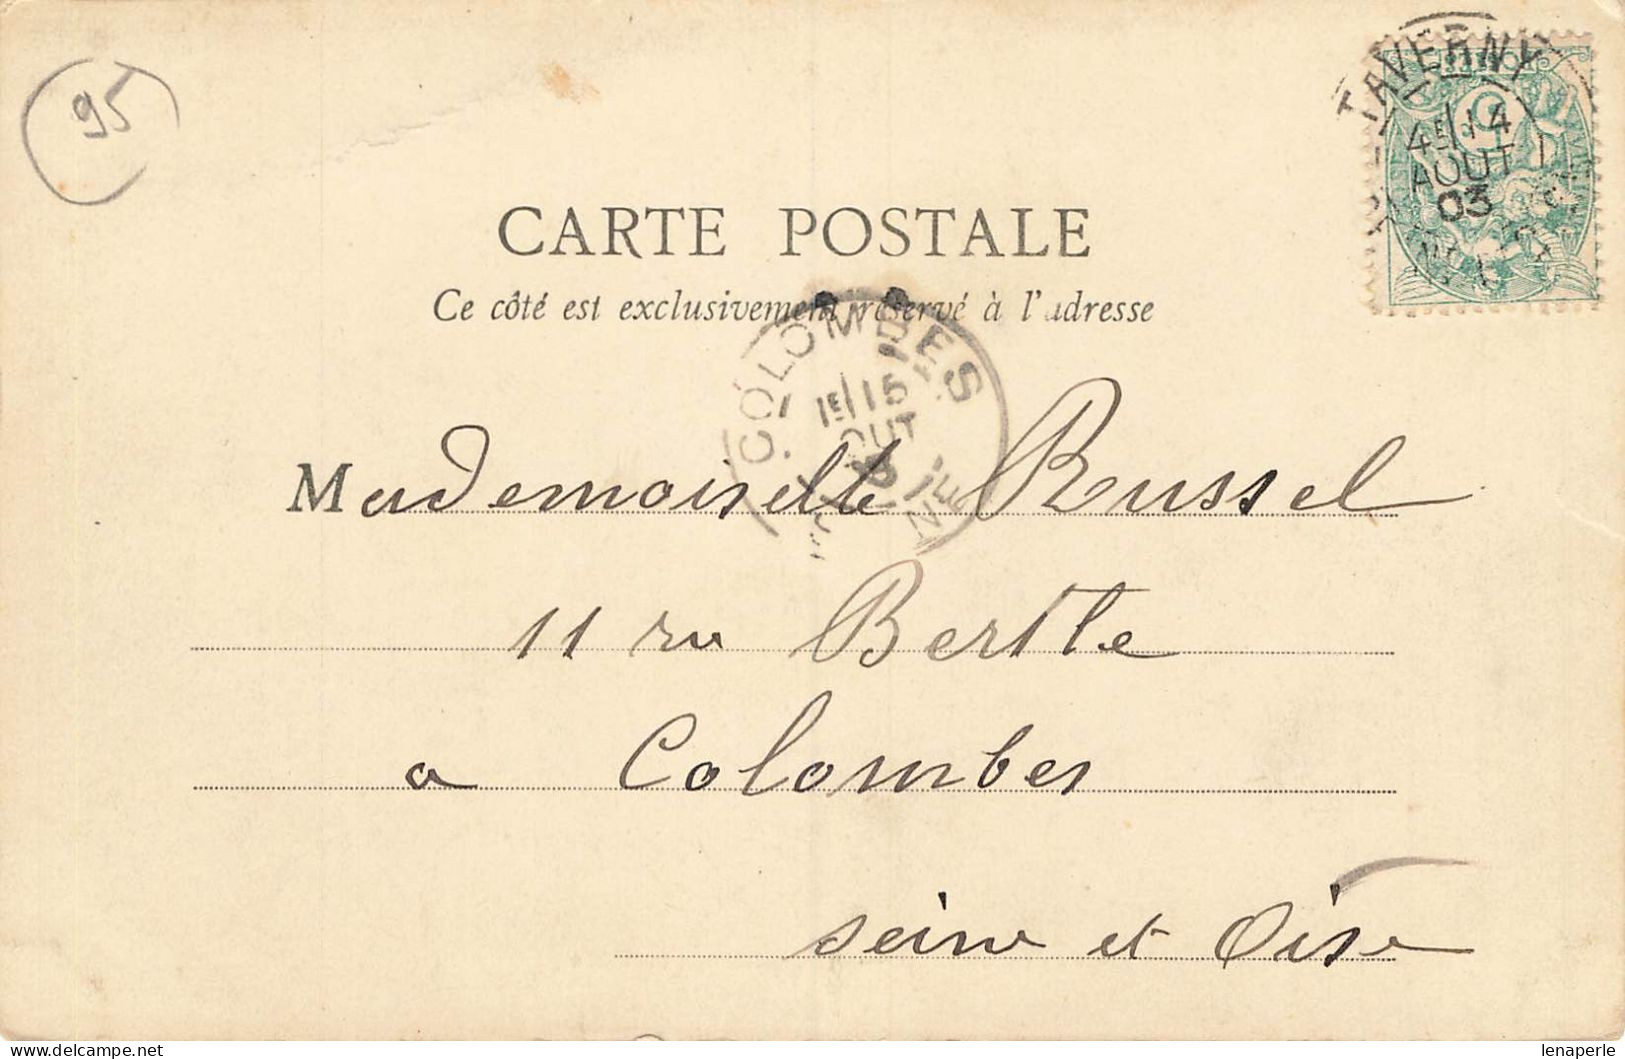 95
TAVERNY
4E/14
AOUT
03
CARTE POSTALE
Ce côté est exclusivement réservé à l'adresse
COLOMBES
1E/15
OUT
Mademoiselle Russel
11 rue Berthe
a Colombes
Seine et Oise
www.delcampe.net
lenaperle